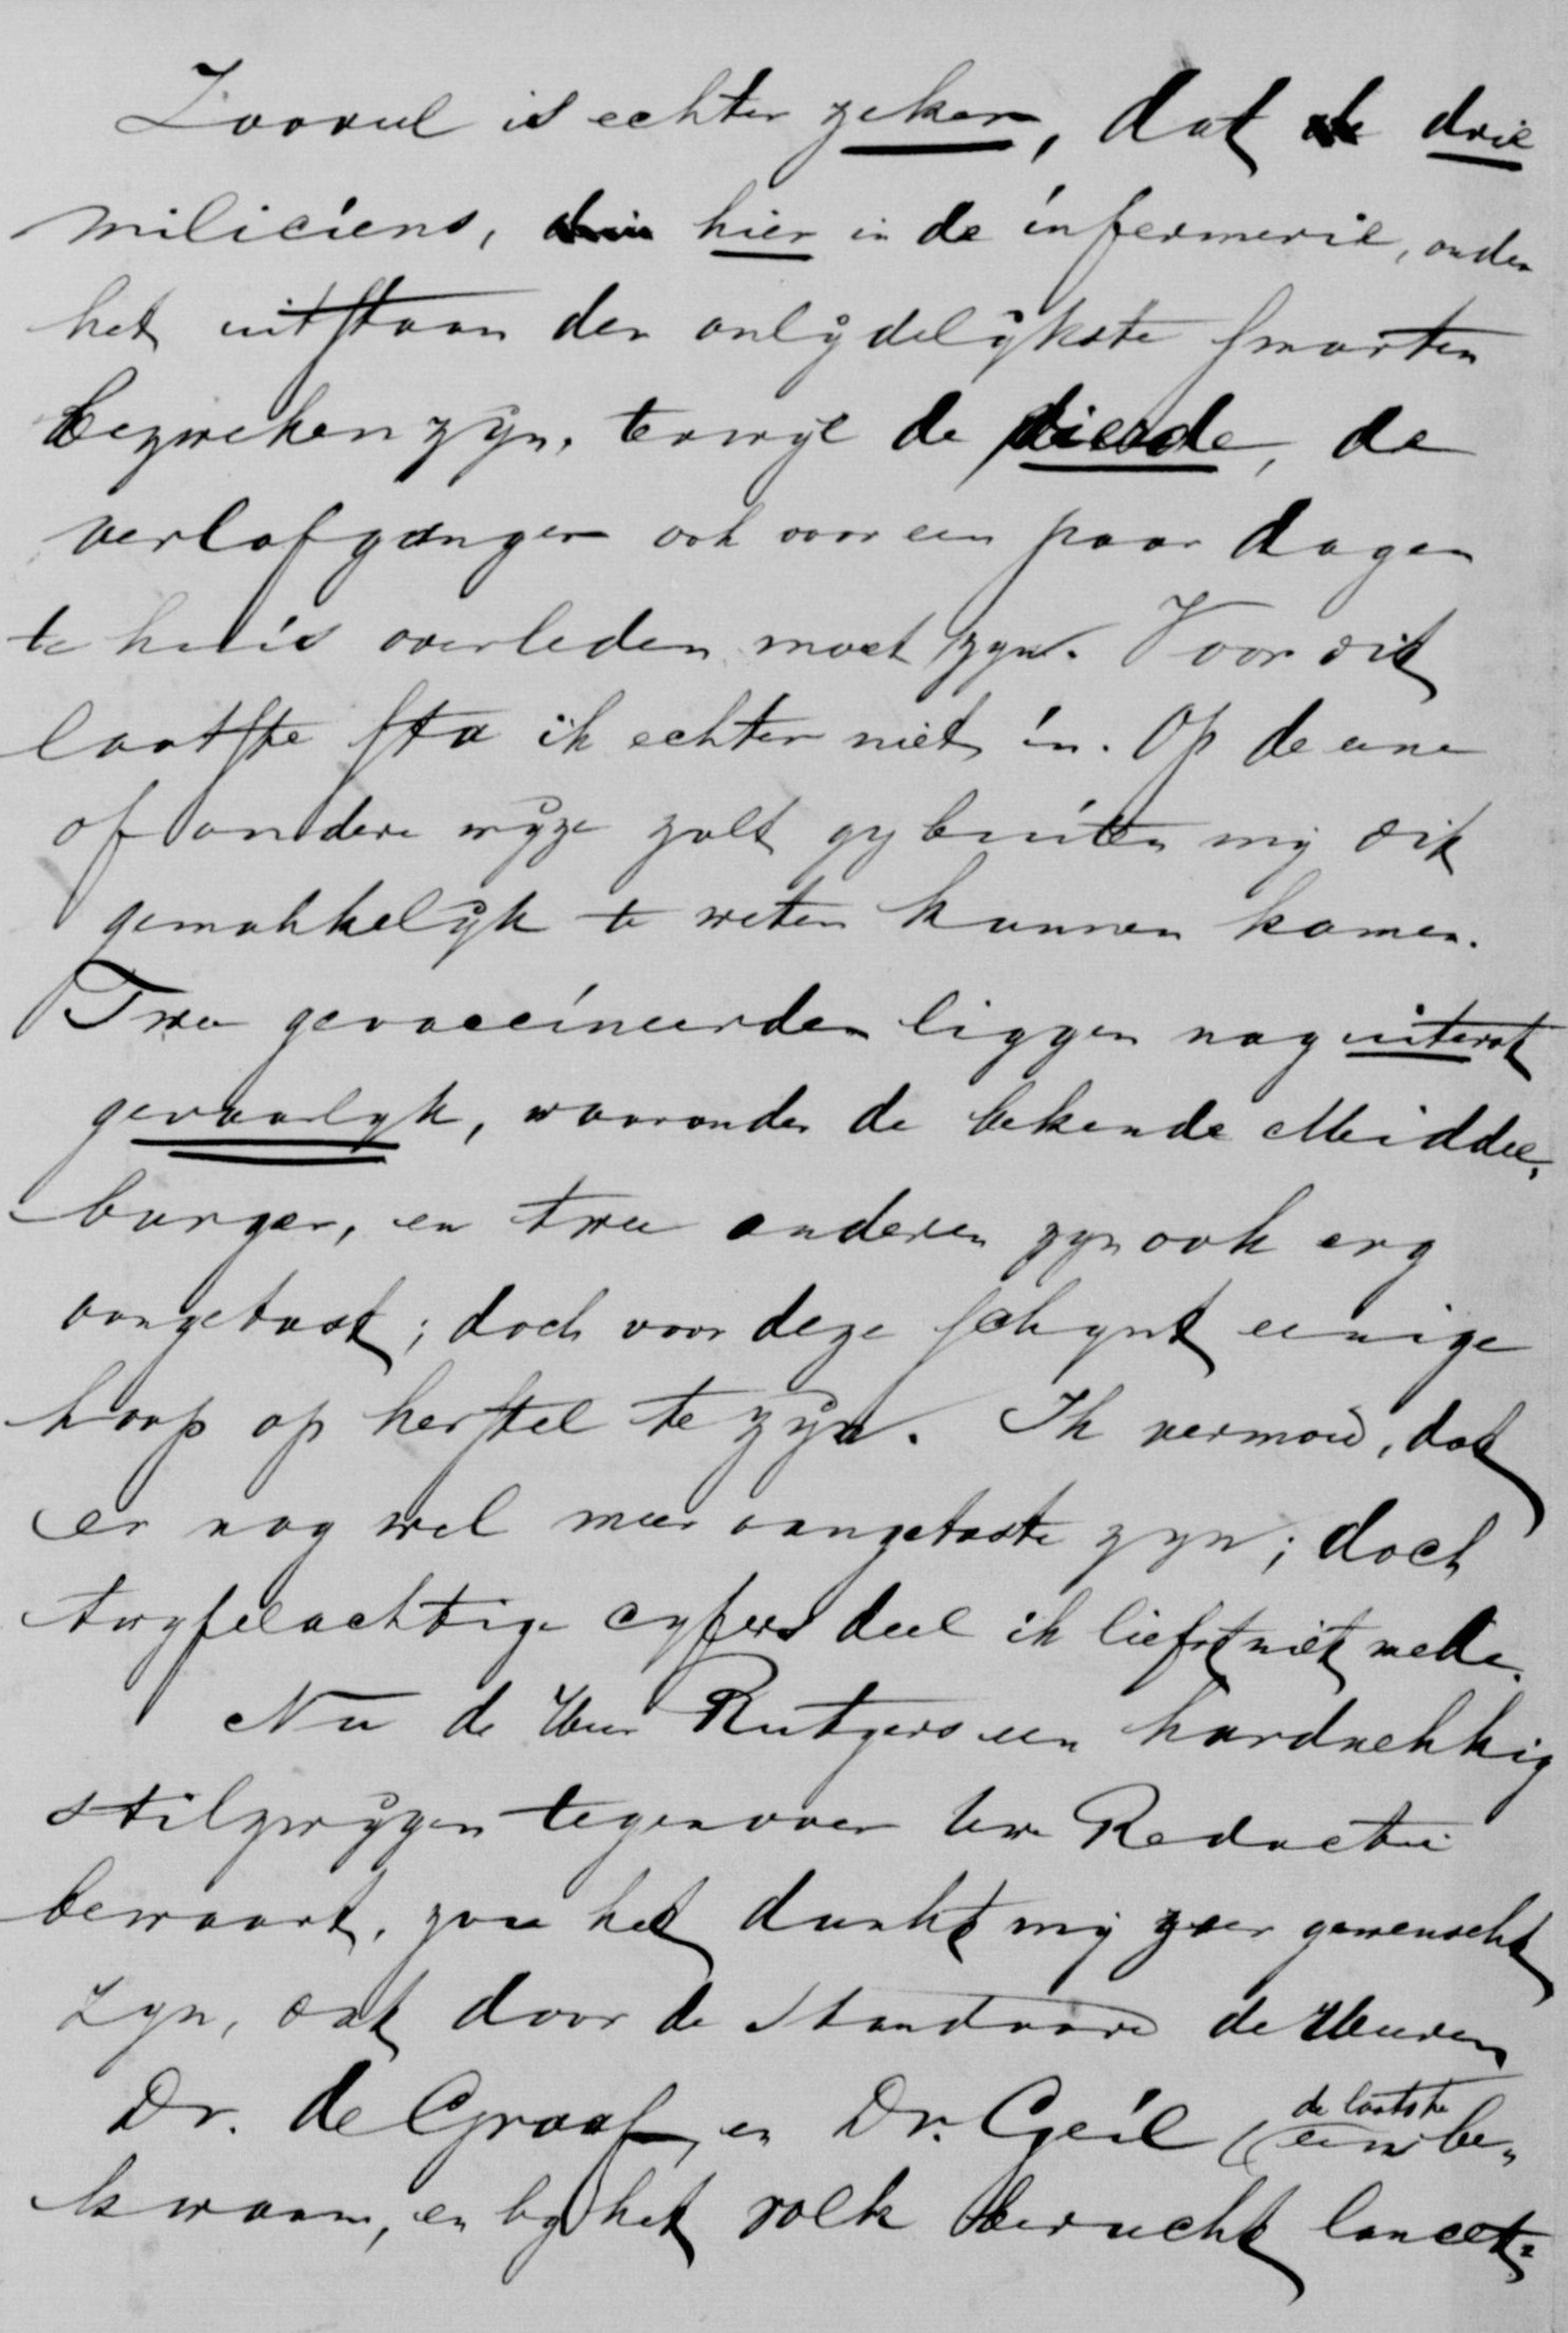 Zooveel is echter zeker, dat de drie
miliciens, hier in de infermerie, onder
het uitstaan der onlijdelijkste smarten
bezweken zijn, terwijl de vierde, de
verlofganger ook voor een paar dagen
te huis overleden moet zijn. Voor dit
laatste sta ik echter niet in. Op de eene
of andere wijze zult gy buiten mij dit
gemakkelijk te weten kunnen komen.
Twee gevaccineerden liggen nog uiterst
gevaarlyk, waaronder de bekende Middel„
burger, en twee anderen zyn ook erg
aangetast; doch voor deze schynt eenige
hoop op herstel te zijn. Ik vermoed, dat
er nog wel meer aangetaste zyn; doch
twyfelachtige cyfers deel ik liefst niet mede.
Nu de Heer Rutgers een hardnekkig
stilzwijgen tegenover Uwe Redactie
bewaart, zou het dunkt mij zeer gewenscht
zyn, dat door de Standaard de Heeren
Dr. de Graaf en Dr. Geil (de laatste
een be„
kwaam, en by het volk berucht lancet=